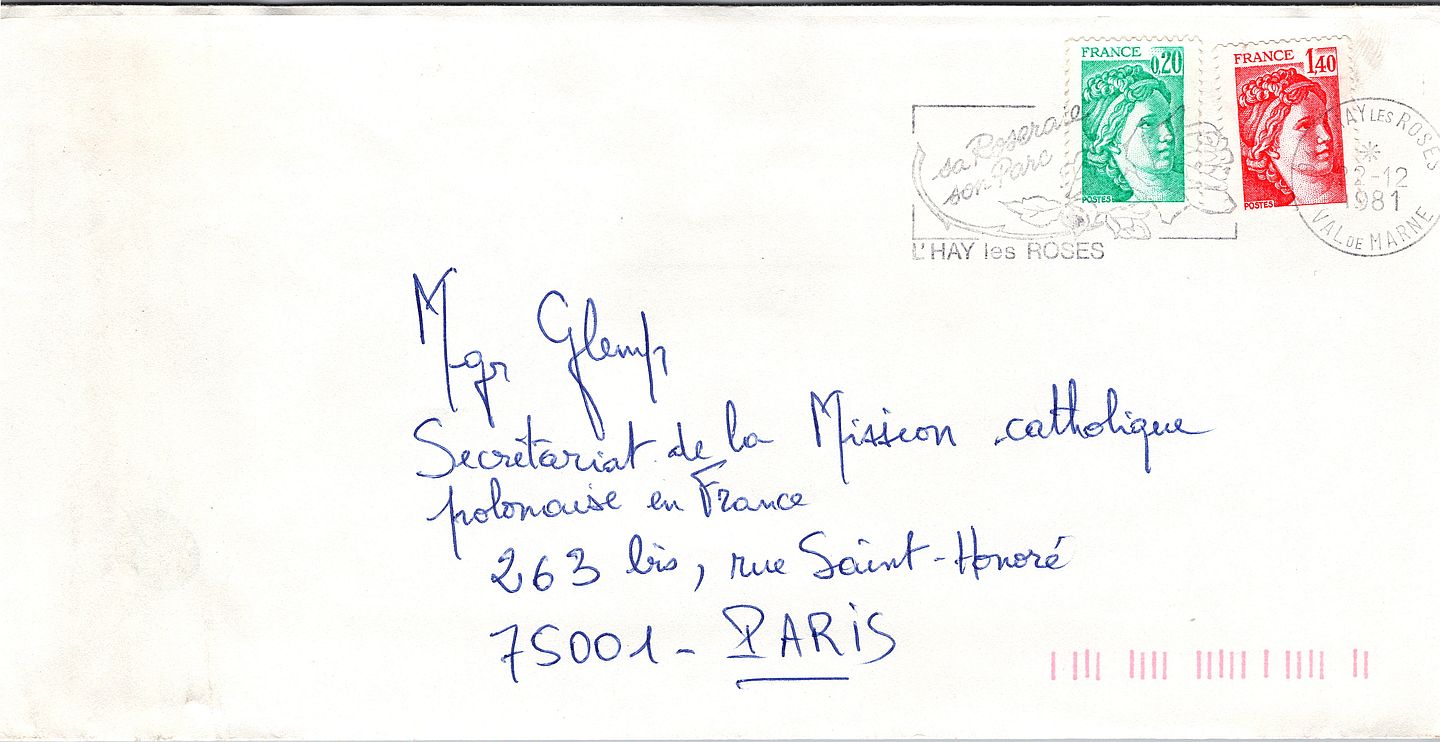 FRANCE 0,20
POSTES
FRANCE 1,40
POSTES
sa Roseraie
son Parc
L'HAY les ROSES
HAY LES ROSES
22-12
1981
VAL DE MARNE
Mgr Glemp
Secrétariat de la Mission catholique
polonaise en France
263 bis, rue Saint-Honoré
75001 - PARIS